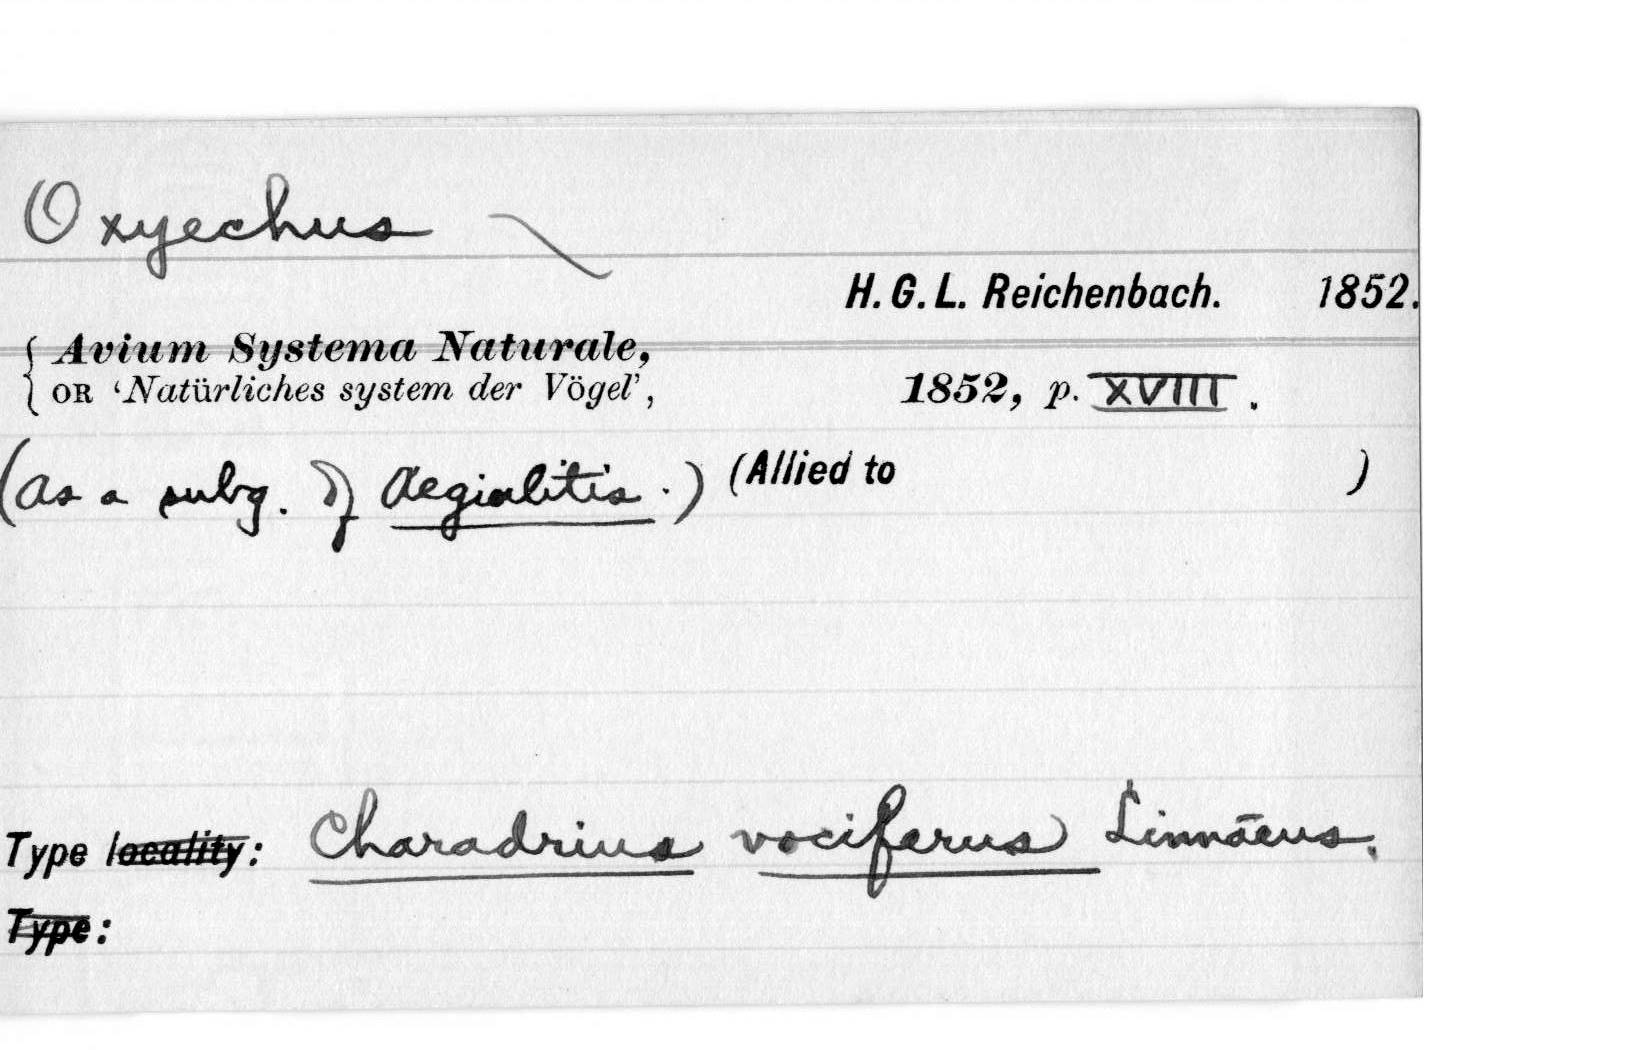 Oxyechus
H. G. L. Reichenbach. 1852.
{ Avium Systema Naturale,
OR ‘Natürliches system der Vögel’, 1852, p. XVIII.
(as a subg. of Aegialitis.) (Allied to )
Type locality: Charadrius vociferus Linnaeus.
Type: